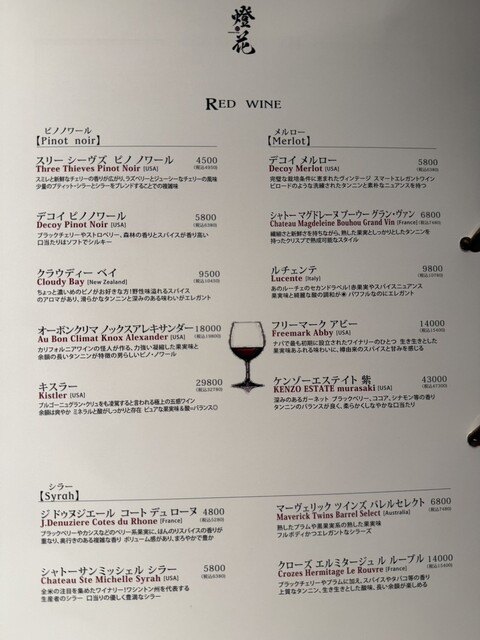 燈花
RED WINE
ピノノワール
【Pinot noir】
スリー シーヴズ ピノ ノワール 4500
Three Thieves Pinot Noir [USA] (税込4950)
スミレと新鮮なチェリーの香りが広がり、ラズベリーとジューシーなチェリーの風味
少量のプティット・シラーとシラーをブレンドすることでの複雑味
デコイ ピノノワール 5800
Decoy Pinot Noir [USA] (税込6380)
ブラックチェリーやストロベリー、森林の香りとスパイスが香り高い
口当たりはソフトでシルキー
クラウディー ベイ 9500
Cloudy Bay [New Zealand] (税込10450)
ちょっと濃いめのピノがお好きな方!野性味溢れるスパイス
のアロマがあり、滑らかなタンニンと深みのある味わいがエレガント
オーボンクリマ ノックスアレキサンダー 18000
Au Bon Climat Knox Alexander [USA] (税込19800)
カリフォルニアワインの怪人が作る、力強い凝縮した果実味と
余韻の長いタンニンが特徴の男らしいピノ・ノワール
キスラー 29800
Kistler [USA] (税込32780)
ブルゴーニュグラン・クリュをも凌駕すると言われる極上の五感ワイン
余韻は爽やか ミネラルと酸がしっかりと存在 ピュアな果実味&酸=バランス◎
メルロー
【Merlot】
デコイ メルロー 5800
Decoy Merlot [USA] (税込6380)
完璧な栽培条件に恵まれたヴィンテージ スマートエレガントワイン
ビロードのような洗練されたタンニンと素朴なニュアンスを持つ
シャトー マグドレーヌ ブーウー グラン・ヴァン 6800
Chateau Magdeleine Bouhou Grand Vin [France] (税込7480)
繊細さと新鮮さを持ちながら、熟した果実としっかりとしたタンニン
を持ったクリスプで熟成可能なスタイル
ルチェンテ 9800
Lucente [Italy] (税込10780)
あのルーチェのセカンドラベル!赤果実やスパイスニュアンス
果実味と綺麗な酸の調和が☀ パワフルなのにエレガント
フリーマーク アビー 14000
Freemark Abby [USA] (税込15400)
ナパで最も初期に設立されたワイナリーのひとつ 生き生きとした
果実味あふれる味わいに、樽由来のスパイスと甘みを感じる
ケンゾーエステイト 紫 43000
KENZO ESTATE murasaki [USA] (税込47300)
深みのあるガーネット ブラックベリー、ココア、シナモン等の香り
タンニンのバランスが良く、柔らかくしなやかな口当たり
シラー
【Syrah】
ジ ドゥヌジエール コート デュ ローヌ 4800
J.Denuziere Cotes du Rhone [France] (税込5280)
ブラックベリーやカシスなどのベリー系果実に、ほんのりスパイスの香りが
重なり、奥行きのある複雑な香り ボリューム感があり、まろやかで豊か
シャトーサンミッシェル シラー 5800
Chateau Ste Michelle Syrah [USA] (税込6380)
全米の注目を集めたワイナリー!ワシントン州を代表する
生産者のシラー 口当りの優しく豊満なシラー
マーヴェリック ツインズ バレルセレクト 6800
Maverick Twins Barrel Select [Australia] (税込7480)
熟したプラムや黒果実系の熟した果実味
フルボディかつエレガントなシラーズ
クローズ エルミタージュ ル ルーブル 14000
Crozes Hermitage Le Rouvre [France] (税込15400)
ブラックチェリーやプラムに加え、スパイスやタバコ等の香り
上質なタンニン、生き生きとした酸味、長い余韻が楽しめる